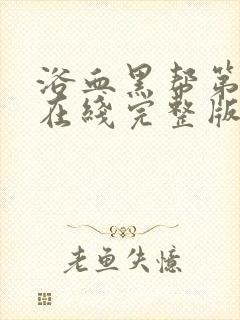 浴血黑帮第
在线完整版
老鱼失憶